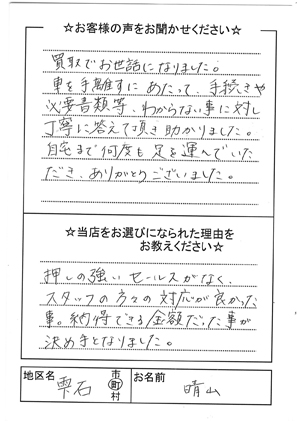 ☆お客様の声をお聞かせください☆
買取でお世話になりました。
車を手離すにあたって、手続きや
必要書類等、わからない事に対し
丁寧に答えて頂き助かりました。
自宅まで何度も足を運んでいた
だき、ありがとうございました。
☆当店をお選びになられた理由を
お教えください☆
押しの強いセールスがなく、
スタッフの方々の対応が良かった
事。納得できる金額だった事が
決め手となりました。
地区名
雫石
市
町
村
お名前
晴山